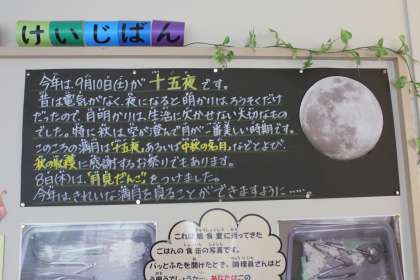 けいじばん
今年は、9月10日(土)が"十五夜"です。
昔は電気がなく、夜になると明かりは、ろうそくだけ
だったので、月明かりは、生活に欠かせない大切なもの
でした。特に秋は空が澄んで月が一番美しい時期です。
このころの満月は"十五夜"、あるいは"中秋の名月"などとよび、
秋の収穫に感謝するお祭りでもあります。
8日(木)は、"月見だんご"をつけました。
今年は、きれいな満月を見ることができますように……
これは給食室に持ってきた
ごはんの食缶の写真です。
パッとふたを開けたとき、調理員さんはど
う思うでしょうか…あなたはこの